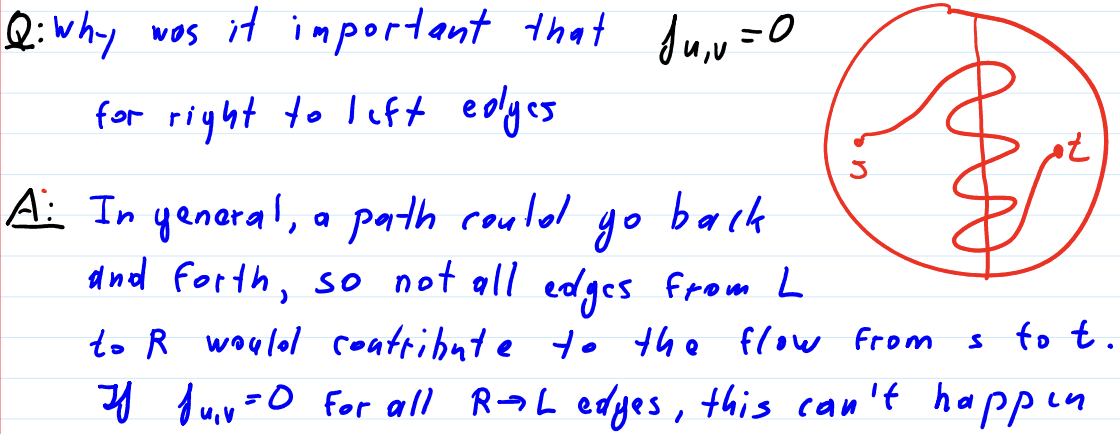 Q: Why was it important that f_{u,v} = 0
for right to left edges
s
t
A: In general, a path could go back
and forth, so not all edges from L
to R would contribute to the flow from s to t.
If f_{u,v} = 0 for all R→L edges, this can't happen